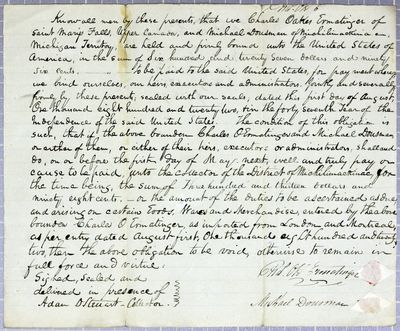 Know all men by these presents, that we Charles Oakes Ermatinger of
Saint Marys Falls, Upper Canada, and Michael Dousman of Michilimackinac in
Michigan Territory, are held and firmly bound unto the United States of
America, in the sum of Six hundred and twenty seven dollars and ninety
Six cents. to be paid to the said United States, for payment whereof
we bind ourselves, our heirs executors and administrators, jointly and severally
firmly by these presents, sealed with our seals, dated this first day of August
One thousand eight hundred and twenty two, & in the forty seventh Year of the
Independence of the said United States. The condition of this obligation is
such, that if the above bounden Charles O Ermatinger and Michael Dousman
or either of them, or either of their heirs, executors or administrators, shall and
do, on or before the first Day of May next, well and truly pay or
cause to be paid, unto the Collector of the District of Michilimackinac, for
the time being, the sum of Three hundred and thirteen Dollars and
ninety eight cents, - or the amount of the duties to be ascertained as due
and arising on certain Goods, Wares and Merchandise, entered by the above
bounden Charles O Ermatinger, as imported from London and Montreal,
as per entry dated August first, One thousand eight hundred and twenty
two, then the above obligation to be void, otherwise to remain in
full force and virtue.
Signed, Sealed and
delivered in presence of
Adam D Steuart - Collector.
Chs Oks Ermatinger
Michael Dousman